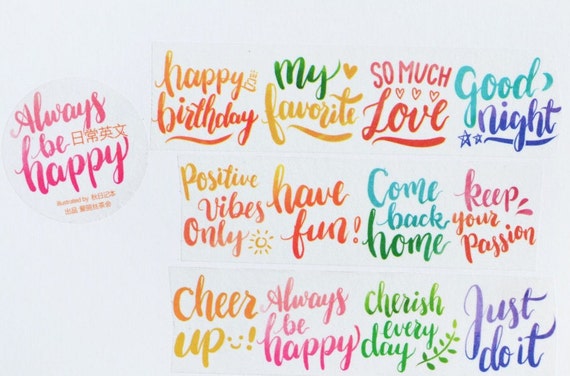 Always
be
日常英文
happy
illustrated by 秋日记本
happy
birthday
my
favorite
SO MUCH
Love
Good
night
Positive
Vibes
Only
have
fun!
Come
back
home
keep
your
Passion
Cheer
up!
Always
be
happy
cherish
every
day
Just
do it